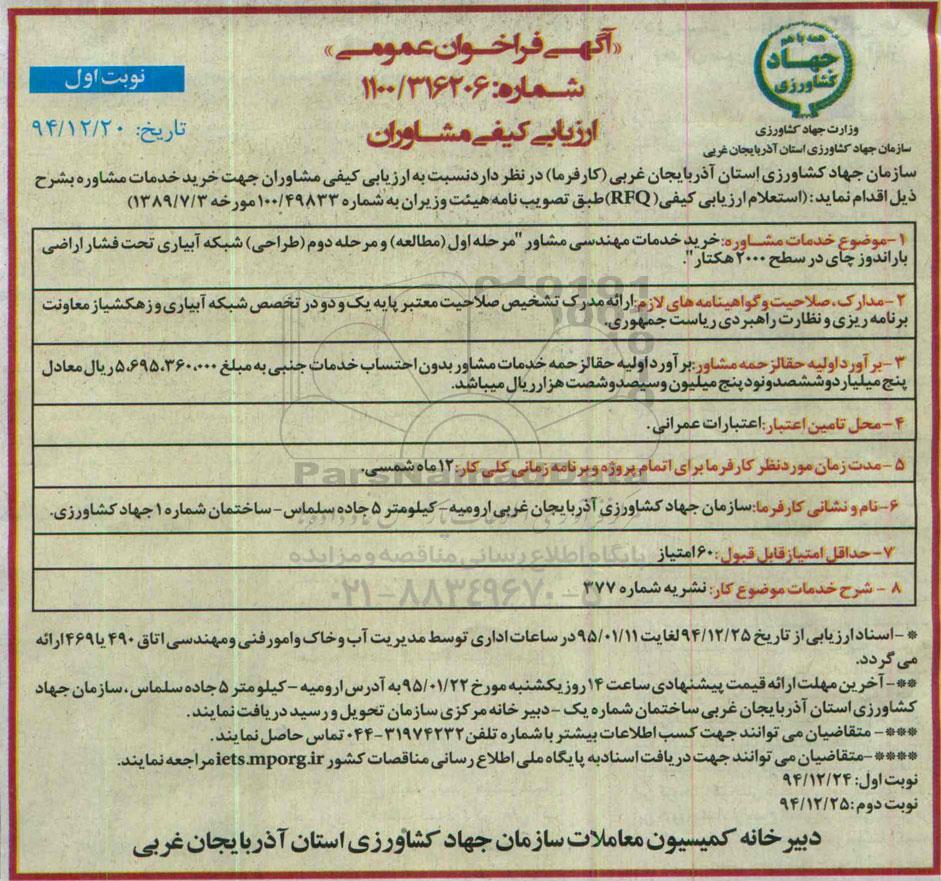 همه با هم
جهاد
کشاورزی
وزارت جهاد کشاورزی
سازمان جهاد کشاورزی استان آذربایجان غربی
«آگهی فراخوان عمومی»
شماره: ۱۱۰۰/۳۱۶۲۰۶
ارزیابی کیفی مشاوران
نوبت اول
تاریخ: ۹۴/۱۲/۲۰
سازمان جهاد کشاورزی استان آذربایجان غربی (کارفرما) در نظر دارد نسبت به ارزیابی کیفی مشاوران جهت خرید خدمات مشاوره بشرح
ذیل اقدام نماید: (استعلام ارزیابی کیفی( RFQ)طبق تصویب نامه هیئت وزیران به شماره ۱۰۰/۴۹۸۳۳ مورخه ۱۳۸۹/۷/۳)
۱-موضوع خدمات مشاوره: خرید خدمات مهندسی مشاور "مرحله اول (مطالعه) و مرحله دوم (طراحی) شبکه آبیاری تحت فشار اراضی
باراندوز چای در سطح ۲۰۰۰ هکتار".
۲-مدارک، صلاحیت و گواهینامه های لازم: ارائه مدرک تشخیص صلاحیت معتبر پایه یک و دو در تخصص شبکه آبیاری و زهکشی از معاونت
برنامه ریزی و نظارت راهبردی ریاست جمهوری.
۳-برآورد اولیه حقالزحمه مشاور: برآورد اولیه حقالزحمه خدمات مشاور بدون احتساب خدمات جنبی به مبلغ ۵,۶۹۵,۳۶۰,۰۰۰ ریال معادل
پنج میلیارد و ششصد و نود پنج میلیون و سیصد و شصت هزار ریال میباشد.
۴-محل تامین اعتبار: اعتبارات عمرانی.
۵-مدت زمان مورد نظر کارفرما برای اتمام پروژه و برنامه زمانی کلی کار: ۱۲ ماه شمسی.
۶-نام و نشانی کارفرما: سازمان جهاد کشاورزی آذربایجان غربی ارومیه- کیلومتر ۵ جاده سلماس- ساختمان شماره ۱ جهاد کشاورزی.
۷-حداقل امتیاز قابل قبول: ۶۰ امتیاز
۸- شرح خدمات موضوع کار: نشریه شماره ۳۷۷
*-اسناد ارزیابی از تاریخ ۹۴/۱۲/۲۵ لغایت ۹۵/۰۱/۱۱ در ساعات اداری توسط مدیریت آب و خاک و امور فنی و مهندسی اتاق ۴۹۰ یا ۴۶۹ ارائه
می گردد.
**-آخرین مهلت ارائه قیمت پیشنهادی ساعت ۱۴ روز یکشنبه مورخ ۹۵/۰۱/۲۲ به آدرس ارومیه -کیلومتر ۵ جاده سلماس، سازمان جهاد
کشاورزی استان آذربایجان غربی ساختمان شماره یک -دبیر خانه مرکزی سازمان تحویل و رسید دریافت نمایند.
***- متقاضیان می توانند جهت کسب اطلاعات بیشتر با شماره تلفن ۳۱۹۷۴۲۳۲-۰۴۴ تماس حاصل نمایند.
****-متقاضیان می توانند جهت دریافت اسناد به پایگاه ملی اطلاع رسانی مناقصات کشور iets.mporg.ir مراجعه نمایند.
نوبت اول: ۹۴/۱۲/۲۴
نوبت دوم: ۹۴/۱۲/۲۵
دبیر خانه کمیسیون معاملات سازمان جهاد کشاورزی استان آذربایجان غربی
ParsNamadData
پایگاه اطلاع رسانی مناقصه و مزایده
۰۲۱-۸۸۳۴۹۶۷۰-۵